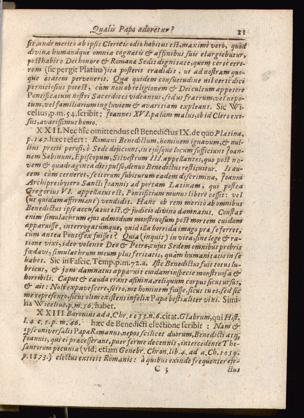 Qualis Papa adoretur? 21
sit, unde merito ab ipsis Clericis odio habitus est, maximè verò, quòd
divina humanaque omnia cognatis & affinibus suis elargiebatur,
posthabito Dei honore & Romanæ Sedis dignitate, quem certè
rorem (sic pergit Platina) ita posteris tradidit, ut ad nostram usque
que ætatem pervenerit. Qua quidem consuetudine nil certè dici
perniciosius potest, cùm non ob religionem & Dei cultum appetere
Pontificatum nostri Sacerdotes videantur, sed ut fratrum, vel nepotum,
vel familiarium ingluviem & avaritiam expleant. Sic
celus, p.m. 94. scribit: Joannes XVI. palàm malus, ob id Clero exosus,
avarissimus homo.
XXII. Nec hîc omittendus est Benedictus IX. de quo Platina,
p. 147. hæc refert: Romani Benedictum, hominem ignavum, & nullius
pretii reijciunt. Sed & dejecto,
nem Sabinum, Episcopum, Silvestrum III. appellantes, qui post novem
& quadraginta dies pulso, denuò Benedictus restituitur. Is autem
cùm cerneret, se iterum subiturum eadem discrimina, Joanni
Archipresbytero Sancti Joannis ad portam Latinam, qui postea
Gregorius VI. appellatus est, Pontificium munus liberè cessit: vel
(ut quidam affirmant) vendidit. Hanc ob rem meritò ab omnibus
Benedictus ipse accusatus est, & judicio divino damnatus. Constat
enim simulachrum ejus admodum monstruosum post mortem cuidam
apparuisse, interrogatumque, quid illa horrida imago præ se ferret,
cùm antea Pontifex fuisset? Quia (inquit) in vita, sine lege & ratione
vixi, ideo volente Deo & Petro, cujus Sedem omnibus probris
fœdavi, simulachrum meum plus feritatis, quàm humanitatis in se
habet. Sic in Fascic. Temp. p.m. 72.a. Iste Benedictus fuit totus lubricus,
& jam damnatus apparuit cuidam in specie monstrosa &
horribili. Caput & cauda erant asinina, reliquum corpus sicut ursus,
& ait: Noli expavescere, scito, me hominem fuisse, sicut tu es, sed sic
me repræsento, sicut olim existens infelix Papa bestialiter vixi. Similia
Wicelius, p.m. 96. habet.
XXIII. Baronius ad a. Chr. 1033. n. 6. citat. Glabrum, qui Hist.
l. 4. c. 5. p.m. 46. hæc de Benedicti electione scribit: Nam &
ipse universalis Papa Romanus, nepos scilicet duorum, Benedicti atque
Joannis, qui ei præcesserant, puer ferme decennis, intercedente thesaurorum
pecunia (vid. etiam Genebr. Chron. lib. 4. ad a. Ch. 1039.
p. 1573.) electus extitit Romanis: à quibus exinde frequenter ejec-
C 3